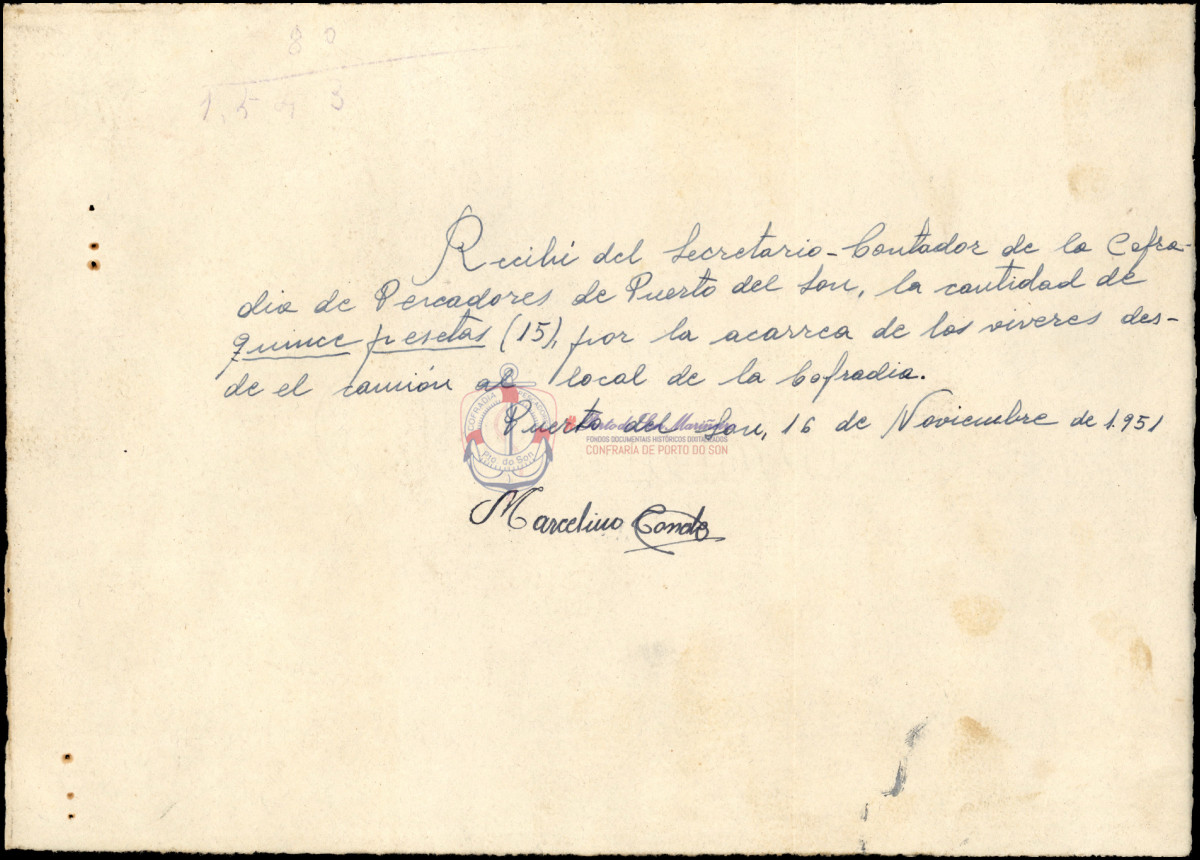 8 0
1.543
Recibí del Secretario-Contador de la Cofra-
dia de Pescadores de Puerto del Son, la cantidad de
quince pesetas (15), por la acarrea de los viveres des-
de el camión al local de la Cofradia.
Puerto del Son, 16 de Noviembre de 1.951
COFRADIA PESCADORES
Pto. do Son
FONDOS DOCUMENTAIS HISTÓRICOS DIXITALIZADOS
CONFRARÍA DE PORTO DO SON
Marcelino Conde